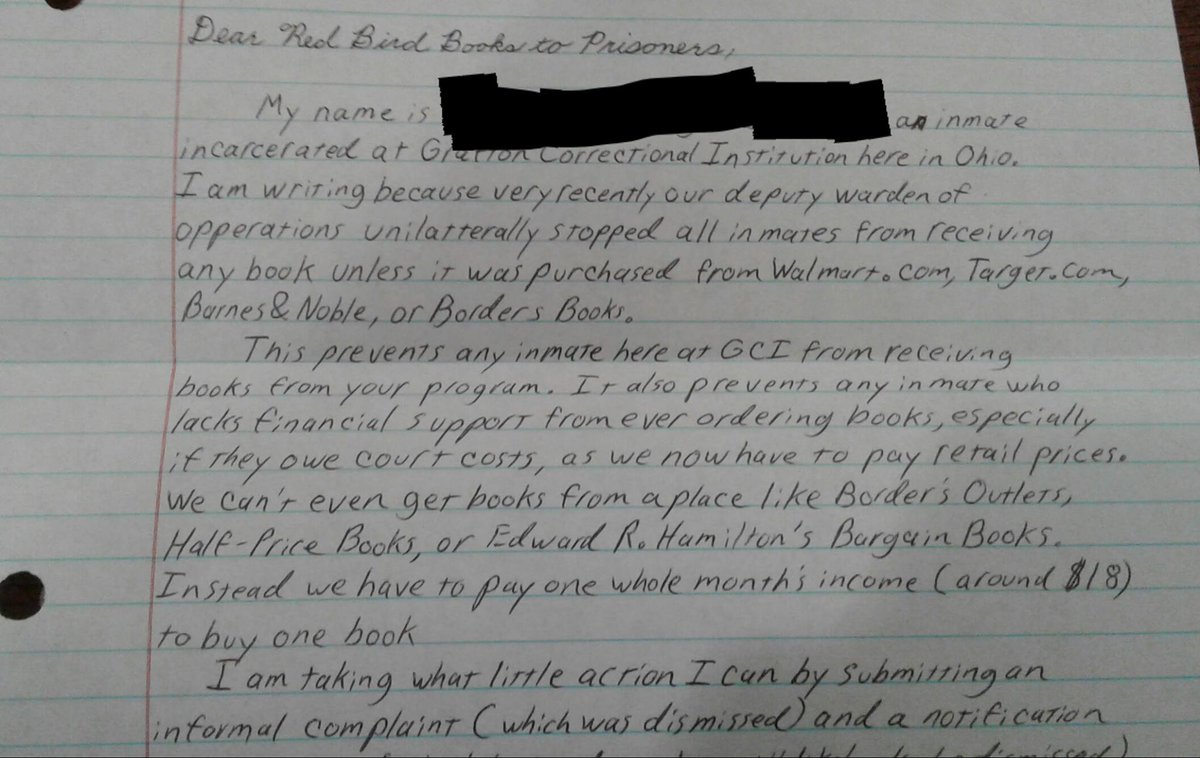 Dear Red Bird Books to Prisoners,
My name is an inmate
incarcerated at Grafton Correctional Institution here in Ohio.
I am writing because very recently our deputy warden of
opperations unilatterally stopped all inmates from receiving
any book unless it was purchased from Walmart.com, Target.com,
Barnes & Noble, or Borders Books.
This prevents any inmate here at GCI from receiving
books from your program. It also prevents any inmate who
lacks financial support from ever ordering books, especially
if they owe court costs, as we now have to pay retail prices.
We can't even get books from a place like Border's Outlets,
Half-Price Books, or Edward R. Hamilton's Bargain Books.
Instead we have to pay one whole month's income (around $18)
to buy one book
I am taking what little action I can by submitting an
informal complaint (which was dismissed) and a notification
dismissed)